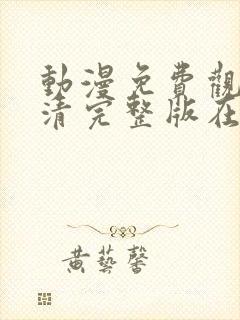 動漫免費觀
清完整版在
黃藝馨